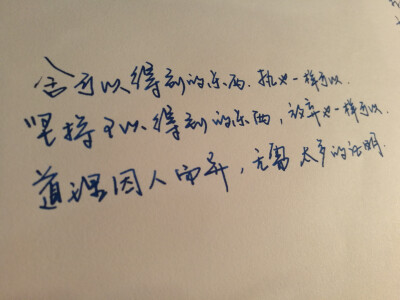 舍可以得到的东西，执也一样可以。
坚持可以得到的东西，放弃也一样可以。
道理因人而异，无需太多的证明。